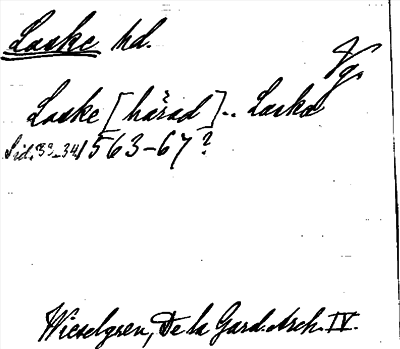 Laske hd.
Vg.
Laske [härad].. Laska
Sid. 33-34 1563-67?
Wieselgren, De la Gard. Arch. IV.